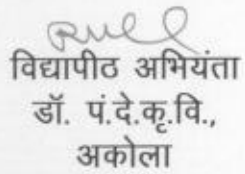 विद्यापीठ अभियंता
डॉ. पं.दे.कृ.वि.,
अकोला